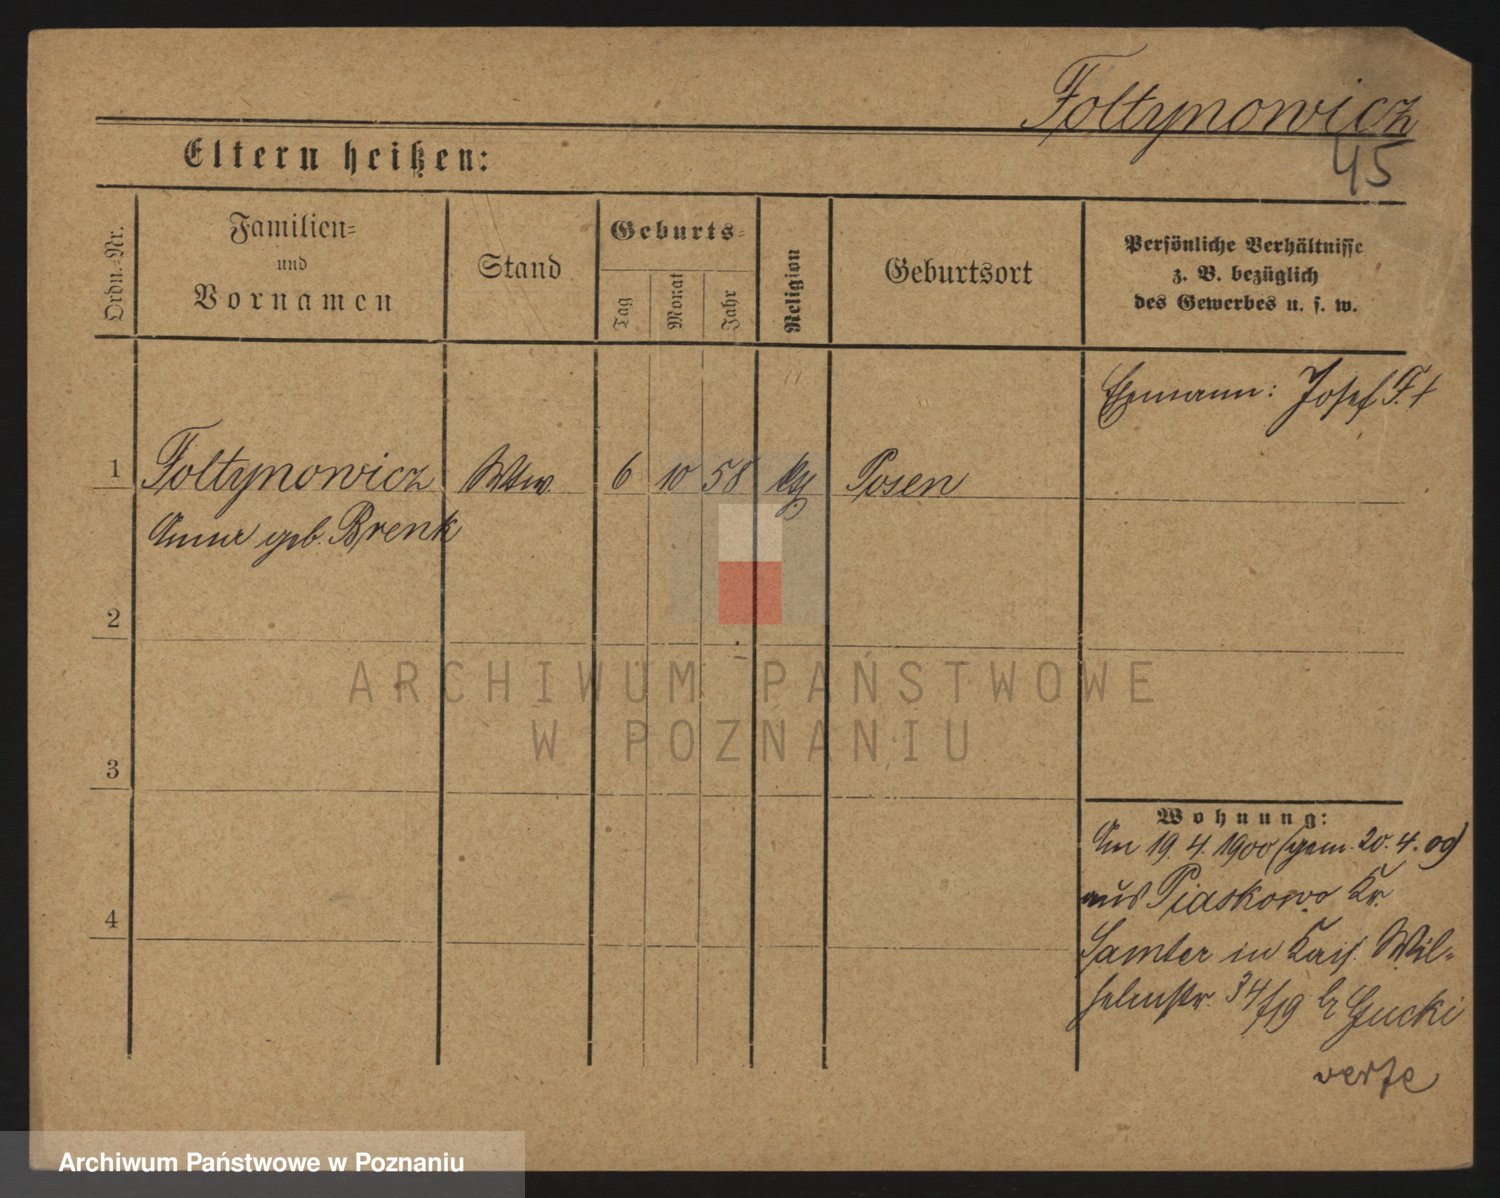 Foltynowicz
45
Eltern heißen:
Ordn.-Nr.
Familien-
und
Vornamen
Stand
Geburts-
Tag
Monat
Jahr
Religion
Geburtsort
Persönliche Verhältnisse
z. B. bezüglich
des Gewerbes u. s. w.
Ehmann: Josef F. †
1 Foltynowicz Wtw. 6 10 58 kt. Posen
Anna geb. Brenk
2
3
4
Wohnung:
Am 19. 4. 1900 (gem. 20. 4. 00)
aus Piaskowo Kr.
Samter in Kais. Wil-
helmstr. 34/19 b Gucki
verte
ARCHIWUM PAŃSTWOWE
W POZNANIU
Archiwum Państwowe w Poznaniu